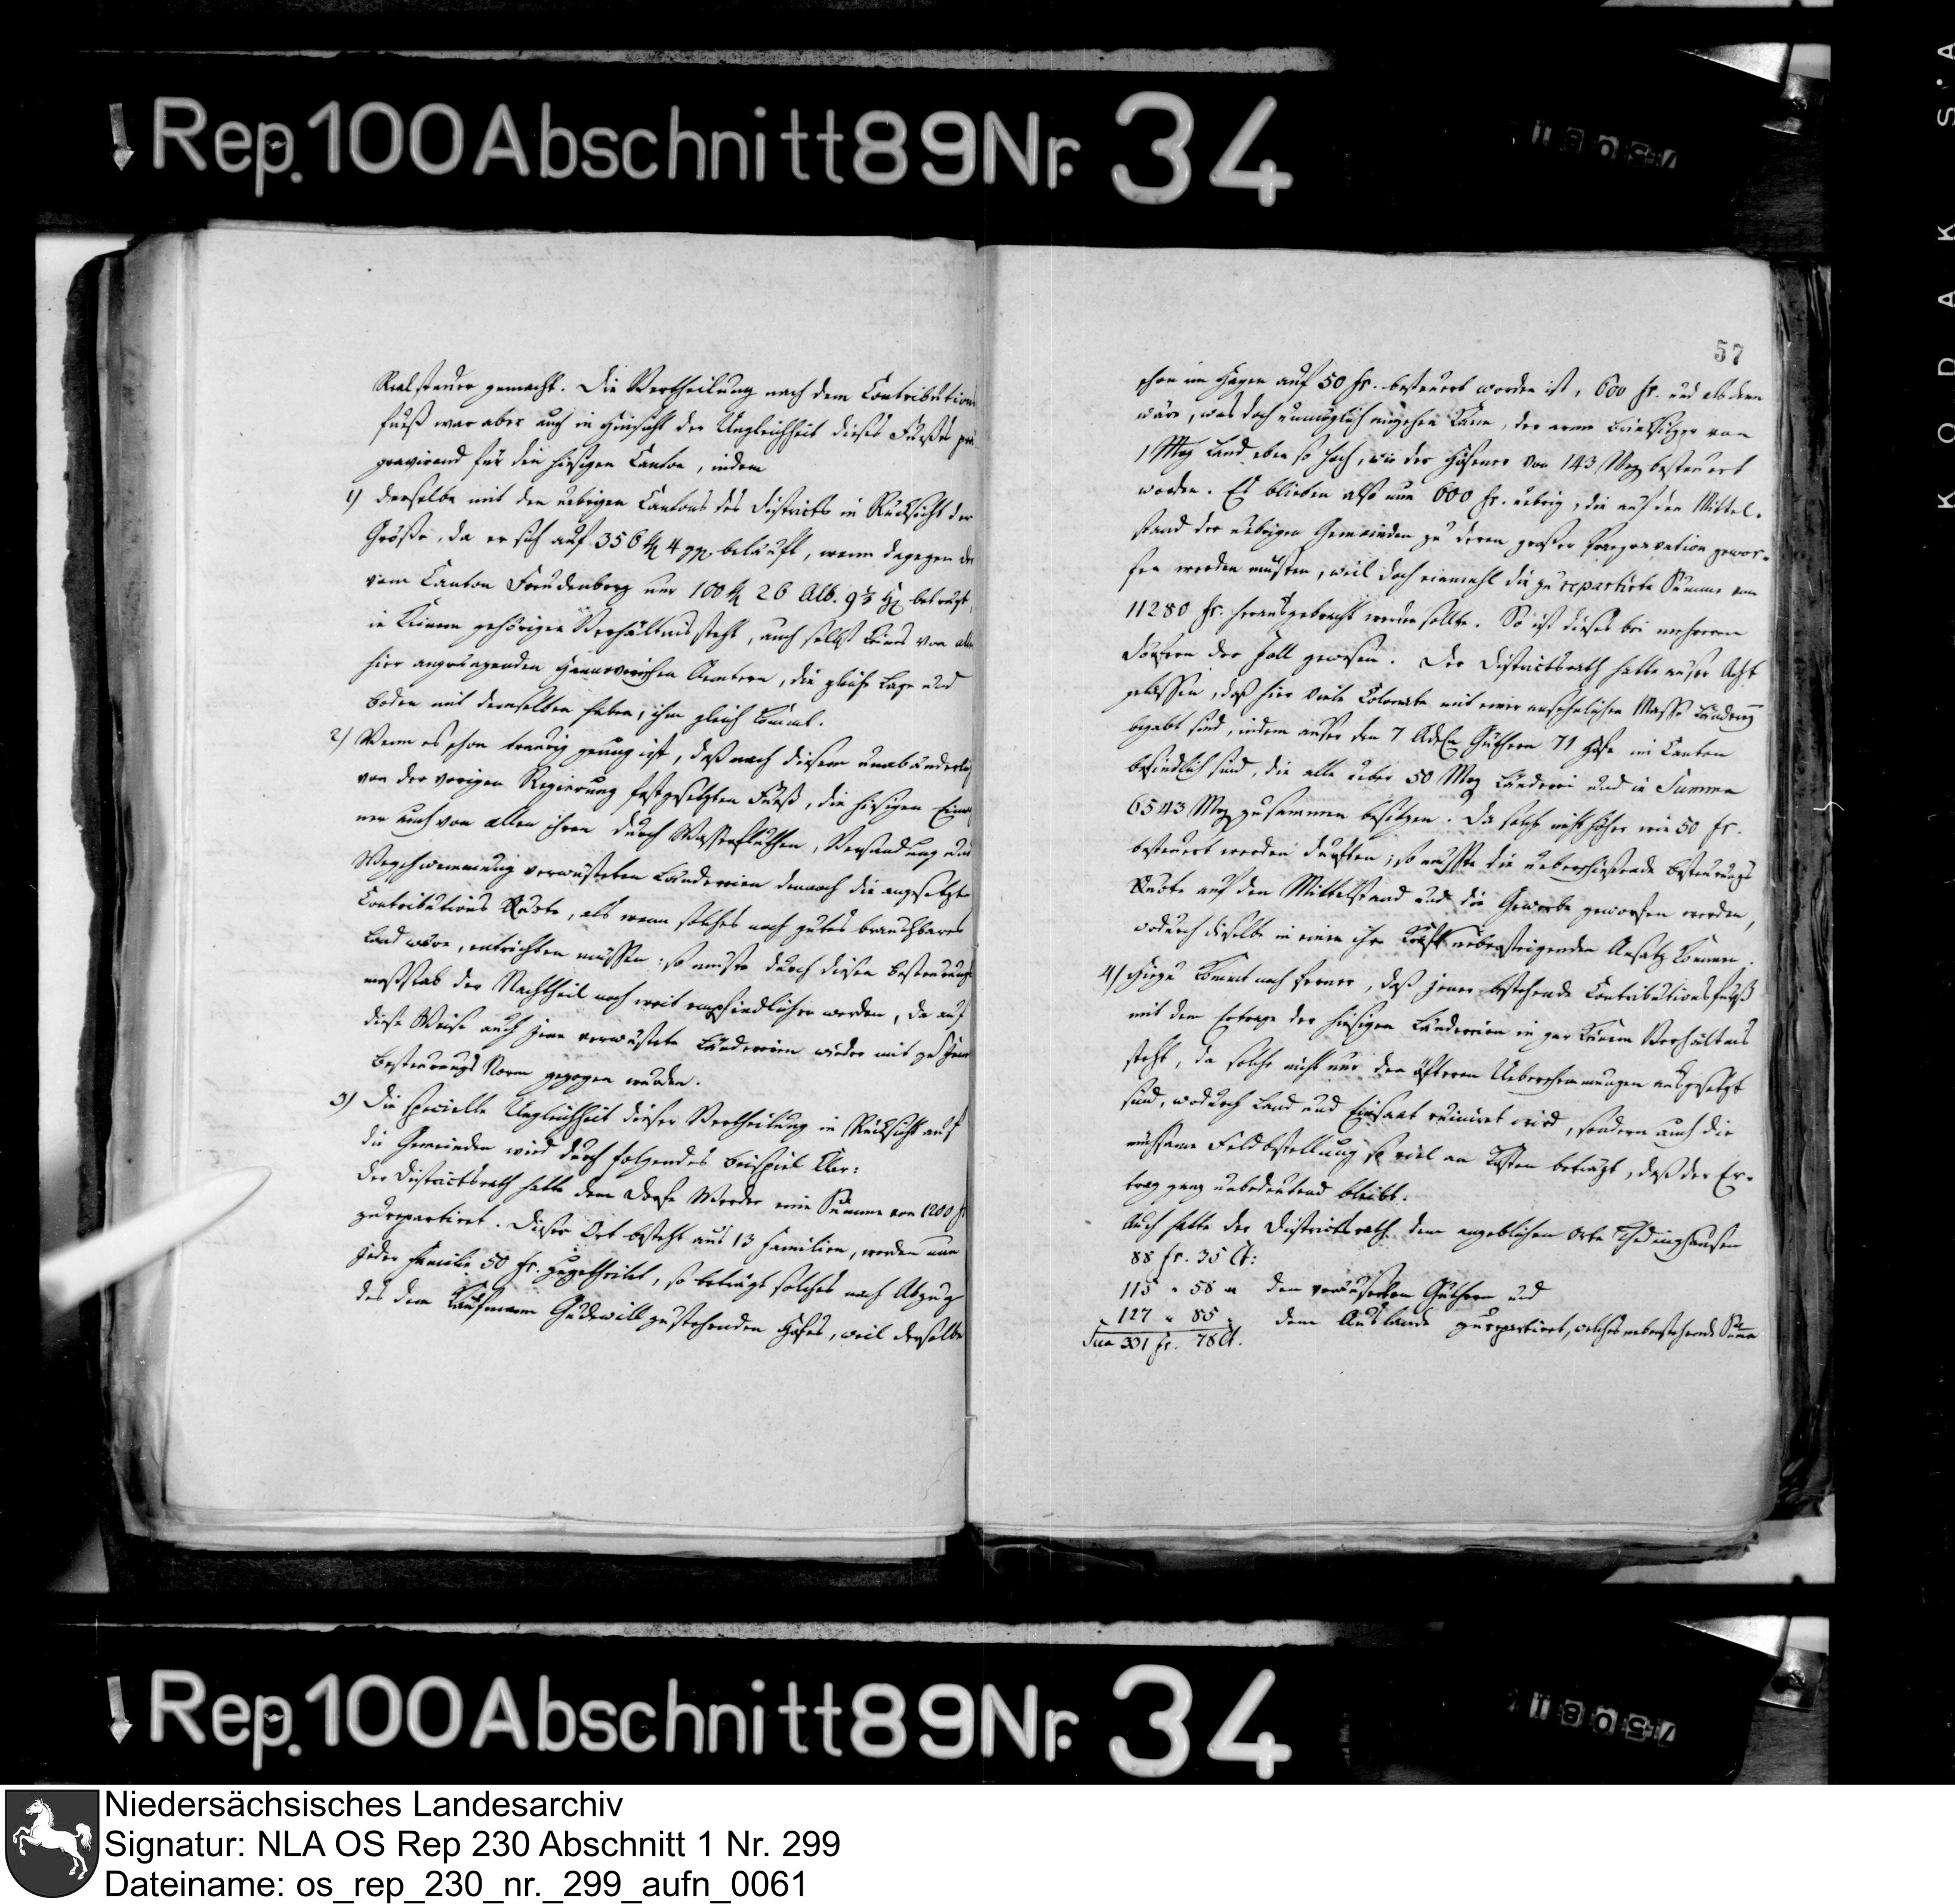 Rep. 100 Abschnitt 89 Nr. 34
Realsteuer gemacht. Die Vertheilung nach dem Contributions
fuß war aber auch in Hinsicht der Ungleichheit dieses Fußes prae
gravirend für den hiesigen Canton, indem
1) derselbe mit den uebrigen Cantons des Districts in Rücksicht der
Größe, da er sich auf 356 4 beläuft, wenn dagegen der
vom Canton Freudenberg nur 100 26 Alb. 9 beträgt,
in keinem gehörigen Verhältniß steht, auch selbst keines von allen
hier angränzenden Hannoverischen Aemtern, die gleiche Lage und
Boden mit demselben haben, ihm gleich kömmt.
2) Wenn es schon traurig genug ist, daß nach diesem unabänderlich
von der vorigen Regierung festgesetzten Fuß, die hiesigen Einwoh
ner auch von allen ihren durch Wasserfluthen, Versandung und
Wegschwemmung verwüsteten Ländereien dennoch die angesetzte
Contributions Quote, als wenn solches noch gutes brauchbares
Land wäre, entrichten müssen: so muste durch diesen Besteurungs
maßstab der Nachtheil noch weit empfindlicher werden, da auf
diese Weise auch jene verwüstete Ländereien wieder mit zu
Besteurungs Norm gezogen wurden.
3) Die specielle Ungleichheit dieser Vertheilung in Rücksicht auf
die Gemeinden wird durch folgendes Beispiel klar:
der Districtsrath hatte dem Dorfe Werder eine Summe von 1200 fr
zurepartiret. Dieser Ort besteht aus 13 Familien, werden nun
jeder Familie 50 fr. zugetheilet, so beträgt solches nach Abzug
des dem Kaufmann Gudewill zustehenden Hofes, weil derselbe
57
schon im Hagen auf 50 fr. besteuert worden ist, 600 fr. und alsdenn
wäre, was doch unmöglich angehen kann, der arme Brinksitzer von
1 Mrg Land eben so hoch, wie der Höfener von 143 Mrg besteuert
worden. Es blieben also nun 600 fr. uebrig, die auf den Mittel-
stand der uebrigen Gemeinden zu deren großer Praegravation gewor-
fen werden musten, weil doch einmahl die zu repartirte Summe von
11280 fr. herausgebracht werden sollte. So ist dieses bei mehreren
Dörfern der Fall gewesen. Der Districtsrath hatte auser Acht
gelassen, daß hier viele Colonate mit einer ansehnlichen Masse Länderey
begabt sind, indem auser den 7 Adel. Güthern 71 Höfe im Canton
befindlich sind, die alle ueber 50 Mrg Länderei und in Summa
6543 Mrg zusammen besitzen. Da solche nicht höher wie 50 fr.
besteuert werden durften; so muste die ueberschießende Besteurungs
Quote auf den Mittelstand und die Gewerbe geworfen werden,
wodurch dieselbe in einen ihre Kräfte uebersteigenden Ansatz kamen.
4) Hiezu kömmt noch ferner, daß jener bestehende Contributionsfuß
mit dem Ertrage der hiesigen Ländereien in gar keinem Verhältnis
steht, da solche nicht nur den öfteren Ueberschwemmungen ausgesetzt
sind, wodurch Land und Einsaat ruiniret wird, sondern auch die
mühsame Feldbestellung so viel an Kosten beträgt, daß der Er-
trag ganz unbedeutend bleibt.
Auch hatte der Districtsrath dem angeblichen Orte Thedinghausen
88 fr. 35 Ct:
115 " 58 " den veräuserten Güthern und
127 " 85 " dem Auslande zurepartiret, welches nebenstehende Summe
Sua 331 fr. 78 Ct.
Rep. 100 Abschnitt 89 Nr. 34
Niedersächsisches Landesarchiv
Signatur: NLA OS Rep 230 Abschnitt 1 Nr. 299
Dateiname: os_rep_230_nr._299_aufn_0061